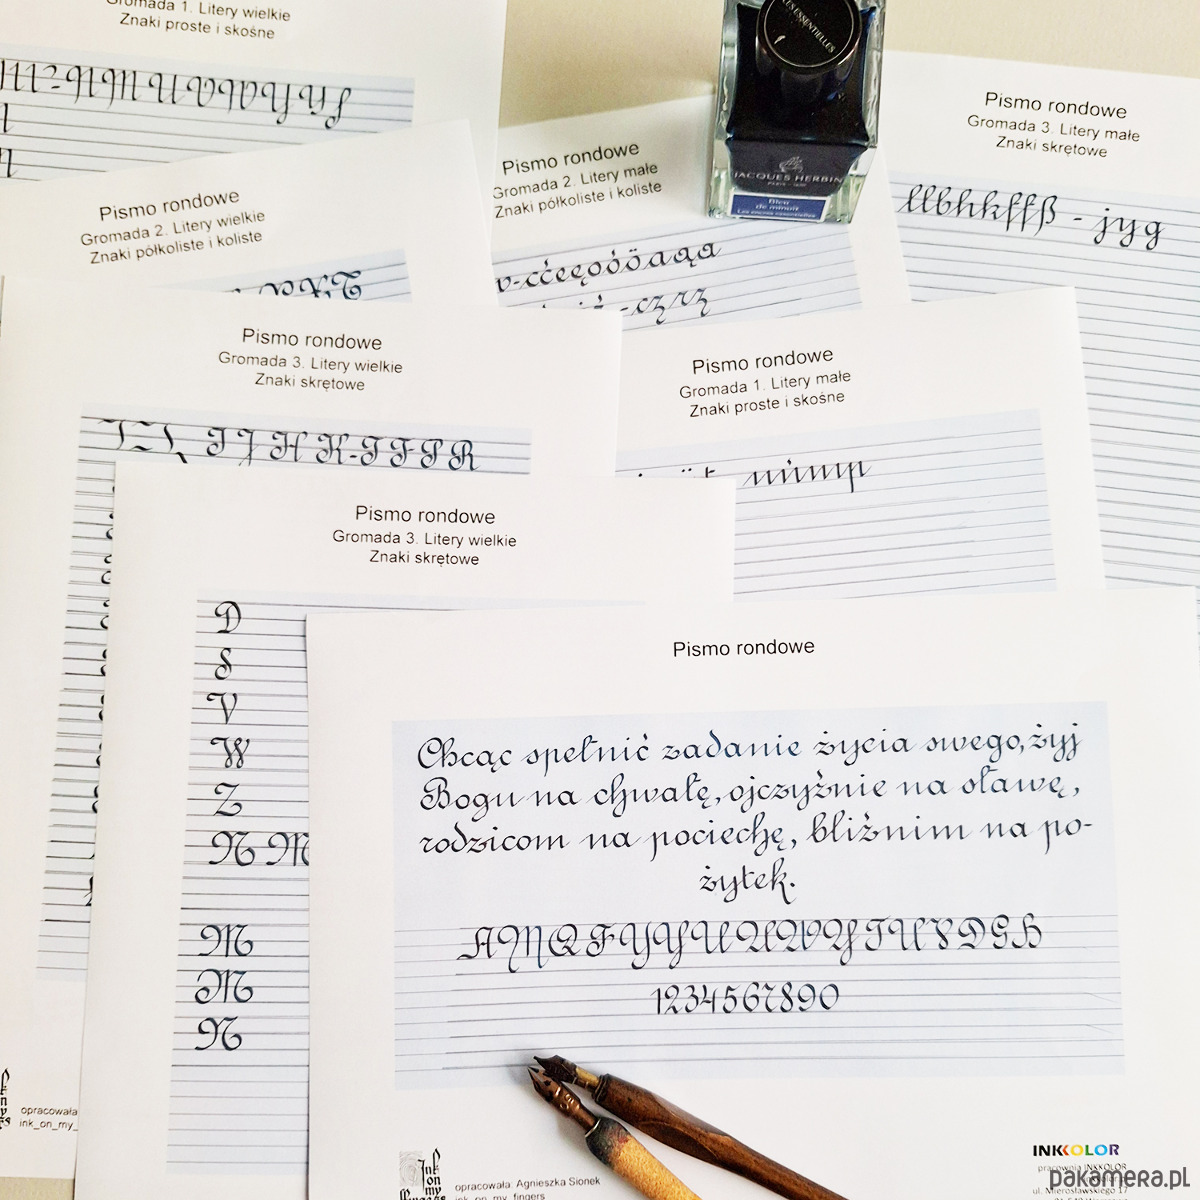 Gromada 1. Litery wielkie
Znaki proste i skośne
Pismo rondowe
Gromada 2. Litery wielkie
Znaki półkoliste i koliste
Pismo rondowe
Gromada 2. Litery małe
Znaki półkoliste i koliste
-cćeęoóöaąa
-czrz
LES ESSENTIELLES
JACQUES HERBIN
PARIS
Bleu
de minuit
Les encres essentielles
Pismo rondowe
Gromada 3. Litery małe
Znaki skrętowe
llbhkffß - jyg
Pismo rondowe
Gromada 3. Litery wielkie
Znaki skrętowe
I J H K-T F P R
Pismo rondowe
Gromada 1. Litery małe
Znaki proste i skośne
Pismo rondowe
Gromada 3. Litery wielkie
Znaki skrętowe
D
S
V
W
Z
N M
M
M
N
Pismo rondowe
Chcąc spełnić zadanie życia swego, żyj
Bogu na chwałę, ojczyźnie na sławę,
rodzicom na pociechę, bliźnim na po-
żytek.
1234567890
opracowała
ink_on_my_
Ink
on my
opracowała: Agnieszka Sionek
ink_on_my_fingers
INKKOLOR
pracownia INKKOLOR
ul. Mierosławskiego
pakamera.pl